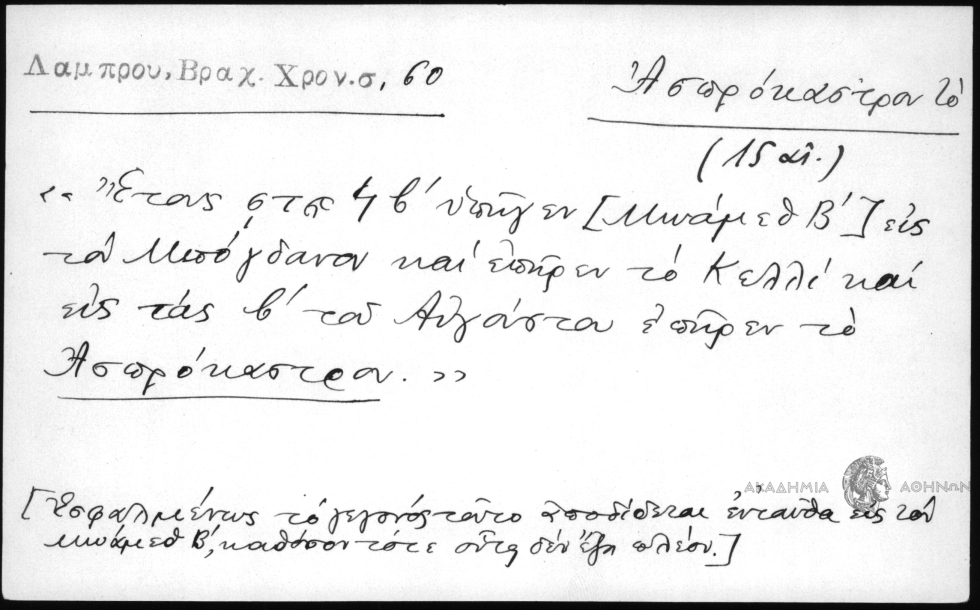 Λαμπρου, Βραχ. Χρον. σ, 60
Ἀσπρόκαστρον τὸ
(15 αἰ.)
«Ἔτους ϛϡϟβ΄ ὑπῆγεν [Μωάμεθ Β΄] εἰς
τὸν Μπόγδανον καὶ ἐπῆρεν τὸ Κελλὶ καὶ
εἰς τὰς β΄ τοῦ Αὐγούστου ἐπῆρεν τὸ
Ἀσπρόκαστρον.»
ΑΚΑΔΗΜΙΑ ΑΘΗΝΩΝ
[Ἐσφαλμένως τὸ γεγονὸς τοῦτο ἀποδίδεται ἐνταῦθα εἰς τὸν
Μωάμεθ Β΄, καθόσον τότε οὗτος δὲν ἔζη πλέον.]